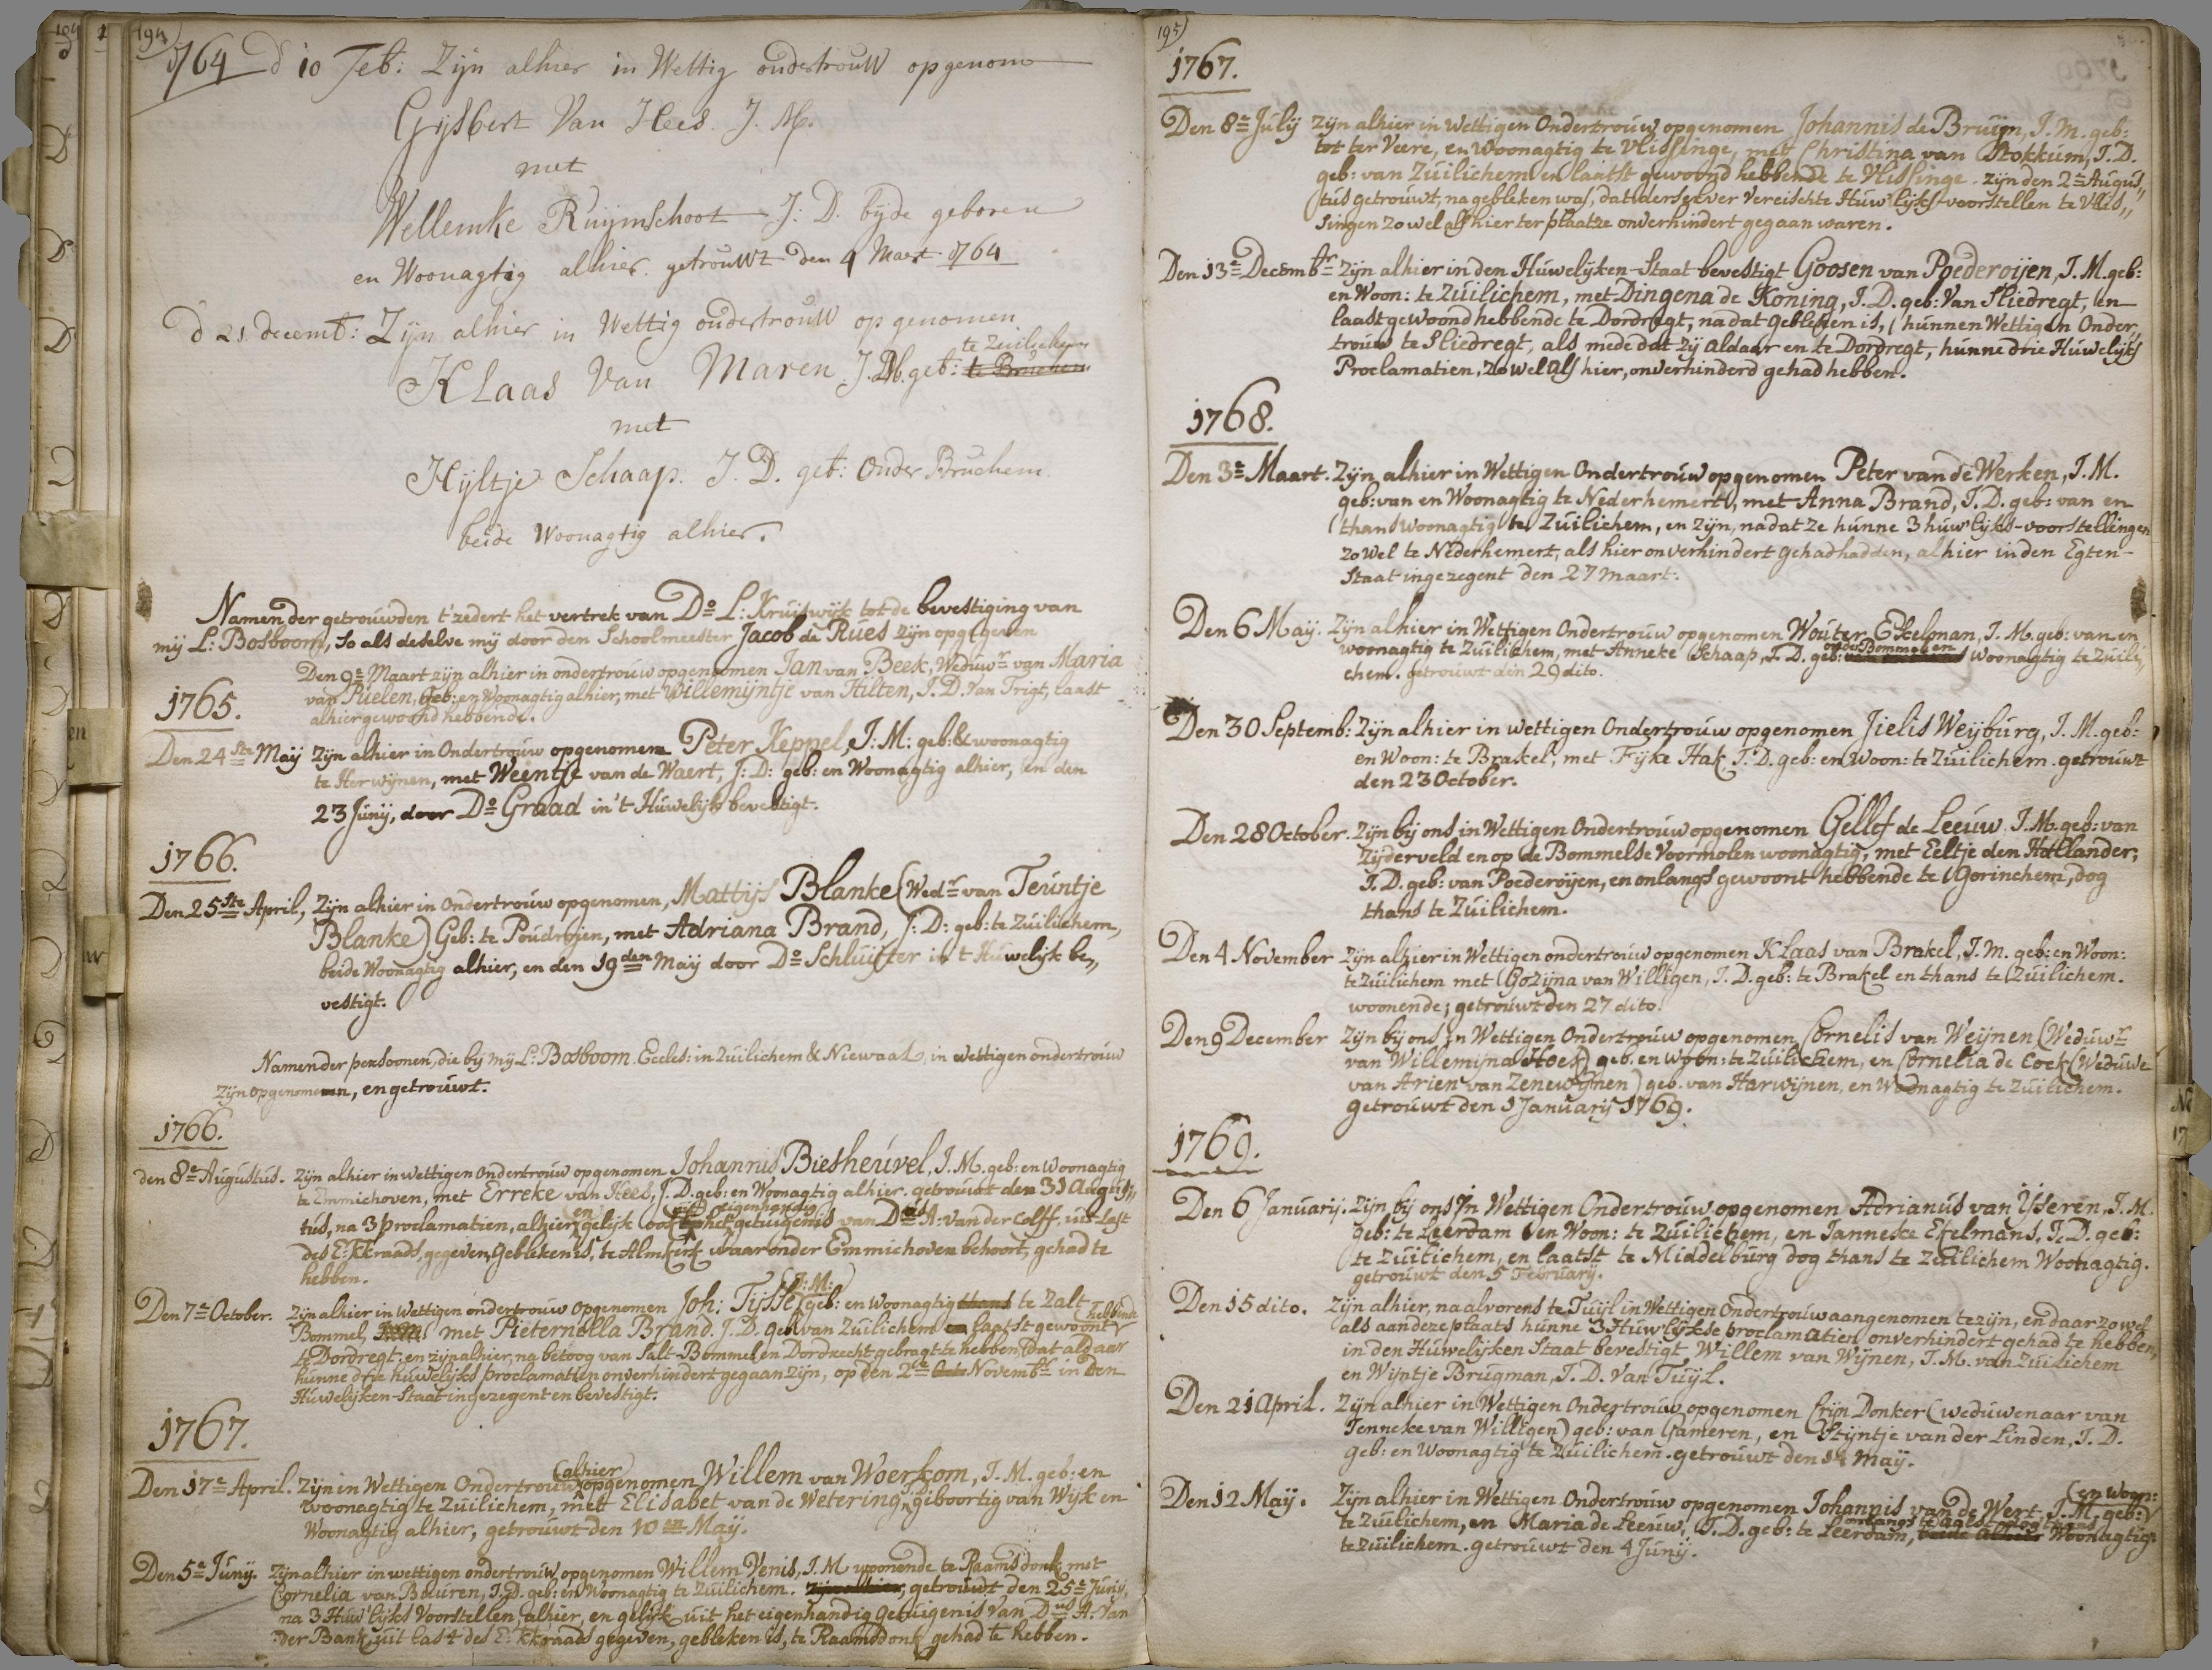 194
1764 d 10 Feb: Zijn alhier in Wettig ondertrouW opgenom
Gijsbert Van Hees. J. M.
met
Wellemke Ruijmschoot J: D. bijde geboren
en Woonagtig alhier. getrouWt den 4 Maert 1764
d 21. decemb: Zijn alhier in Wettig ondertrouW op genomen
te Zuilichem
Klaas Van Maren J. M. geb: te Bruchem
met
Hijltje Schaap. J. D. geb: Onder Bruchem
beide Woonagtig alhier.
Namen der getrouwden t'zedert het vertrek van Do L: Kruiswijk tot de bevestiging van
mij L: Bosboom, so als deselve mij door den Schoolmeester Jacob de Rues zijn opgegeven
Den 9e Maart zijn alhier in ondertrouw opgenomen Jan van Beek, Weduwr van Maria
van Rielen, Geb: en Woonagtig alhier, met Willemijntje van Hilten, J. D. Van Trigt, laast
1765.
alhier gewoond hebbende.
Den 24ste Maij Zijn alhier in Ondertrouw opgenomen Peter Keppel, J: M: geb: & woonagtig
te Herwijnen, met Weentje van de Waert, J: D: geb: en Woonagtig alhier, en den
23 Junij, door Do Graad in 't Huwelijk bevestigt.
1766.
Den 25ste April, Zijn alhier in Ondertrouw opgenomen, Mattijs Blanke (Wedr van Teuntje
Blanke) Geb: te Poudrojen, met Adriana Brand, J: D: geb: te Zuilichem,
beide Woonagtig alhier, en den 19den Maij door Do Schluiter in 't Huwelijk be„
vestigt.
Namen der persoonen, die bij mij L: Bosboom. Eccles: in Zuilichem & Niewaal, in wettigen ondertrouw
Zijn opgenomen, en getrouwt.
1766.
den 8e Augustus. Zijn alhier in wettigen ondertrouw opgenomen Johannis Biesheuvel, J. M. geb: en Woonagtig
te Emmichoven, met Erreke van Hees, J. D. geb: en Woonagtig alhier. getrouwt den 31 Augus„
en eigenhandig
tus, na 3 proclamatien, alhier gelijk het getuigenis van Dus A: van der Colff, uit Last
des E: Kkraads, gegeven, gebleken is, te Almkerk waaronder Emmichoven behoort, gehad te
hebben.
(J: M:)
Den 7e October. Zijn alhier in Wettigen ondertrouw opgenomen Joh: Tijsse geb: en woonagtig thans te Zalt
hebbende
Bommel, met Pieternella Brand. J. D. geb van Zuilichem en laatst gewoont
te Dordregt: en zijn alhier, na betoog van Salt-Bommel en Dordrecht gebragt te hebben, dat aldaar
hunne drie huwelijks proclamatien onverhindert gegaan zijn, op den 2e Novembr in Den
Huwelijken-Staat ingezegent en bevestigt.
1767.
(alhier)
Den 17e April. Zijn in Wettigen Ondertrouw opgenomen Willem van Woerkom, J. M. geb: en
J. D.
woonagtig te Zuilichem, met Elisabet van de Wetering, giboortig van Wijk en
Woonagtig alhier, getrouwt den 10en Maij.
Den 5e Junij. Zijn alhier in wettigen ondertrouw opgenomen Willem Venis, J. M. woonende te Raamsdonk, met
Cornelia van Beuren, J. D. geb: en Woonagtig te Zuilichem. Zijn alhier, getrouwt den 25e Junij,
na 3 Huw'lijks Voorstellen, alhier, en gelijk uit het eigenhandig getuigenis van Dus A. van
der Bank, uit last des E: Kkraads gegeven, gebleken is, te Raamsdonk gehad te hebben.
195
1767.
Den 8e Julij Zijn alhier in Wettigen Ondertrouw opgenomen Johannis de Bruijn, J. M. geb:
tot ter Veere, en Woonagtig te Vlissinge, met Christina van Stokkum, J. D.
geb: van Zuilichem en laatst gewoond hebbende te Vlissinge. zijn den 2e Augus„
tus getrouwt, na gebleken was, dat derselver Vereischte Huw'lijks-voorstellen te Vlis„
singen zo wel als hier ter plaatze onverhindert gegaan waren.
Den 13e Decembr Zijn alhier in den Huwelijken-Staat bevestigt Goosen van Poederoijen, J. M. geb:
en Woon: te Zuilichem, met Dingena de Koning, J. D. geb: Van Sliedregt, en
laast gewoond hebbende te Dordregt, na dat gebleken is, hunnen Wettigen Onder„
trouw te Sliedregt, als mede dat zij aldaar en te Dordregt, hunne drie Huwelijks
Proclamatien, zo wel als hier, onverhinderd gehad hebben.
1768.
Den 3e Maart. Zijn alhier in Wettigen Ondertrouw opgenomen Peter van de Werken, J. M.
geb: van en Woonagtig te Nederhemert, met Anna Brand, J. D. geb: van en
thans woonagtig te Zuilichem, en zijn, na dat ze hunne 3 huw'lijks-voorstellingen
zo wel te Nederhemert, als hier onverhindert gehad hadden, alhier in den Egten-
Staat ingezegent den 27 maart.
Den 6 Maij. Zijn alhier in Wettigen Ondertrouw opgenomen Wouter Ekelman, J. M. geb: van en
onder Bommel en
woonagtig te Zuilichem, met Anneke Schaap, J. D. geb: woonagtig te Zuili„
chem. getrouwt den 29 dito.
Den 30 Septemb: Zijn alhier in wettigen Ondertrouw opgenomen Jielis Weyburg, J. M. geb:
en Woon: te Brakel, met Fijke Hak, J. D. geb: en Woon: te Zuilichem. getrouwt
den 23 October.
Den 28 October. Zijn bij ons in Wettigen Ondertrouw opgenomen Gellef de Leeuw. J. M. geb: van
Zijderveld en op de Bommelse Voormolen woonagtig, met Eeltje den Hatlander,
J. D. geb: van Poederoijen, en onlangs gewoont hebbende te Gorinchem, dog
thans te Zuilichem.
Den 4 November Zijn alhier in Wettigen ondertrouw opgenomen Klaas van Brakel, J. M. geb: en Woon:
te Zuilichem met Gozijna van Willigen, J. D. geb: te Brakel en thans te Zuilichem.
woonende; getrouwt den 27 dito.
Den 9 December Zijn bij ons in Wettigen Ondertrouw opgenomen Cornelis van Weijnen (Weduwr
van Willemijna Hoek) geb. en Woon: te Zuilichem, en Cornelia de Cock (Weduwe
van Arien van Zenewijnen) geb. van Harwijnen, en Woonagtig te Zuilichem.
getrouwt den 1 Januarij 1769.
1769.
Den 6 Januarij. Zijn bij ons in Wettigen Ondertrouw opgenomen Adrianus van IJseren, J. M.
geb: te Leerdam en Woon: te Zuilichem, en Janneske Ekelmans, J. D. geb:
te Zuilichem, en laatst te Middelburg dog thans te Zuilichem Woonagtig.
getrouwt den 5 Februarij.
Den 15 dito. Zijn alhier, na alvorens te Tuijl in Wettigen Ondertrouw aangenomen te zijn, en daar zo wel
als aan deze plaats hunne 3 Huw'lijkse proclamatien onverhindert gehad te hebben,
in den Huwelijken Staat bevestigt Willem van Wijnen, J. M. van Zuilichem
en Wijntje Brugman, J. D. Van Tuijl.
Den 21 April. Zijn alhier in Wettigen Ondertrouw opgenomen Crijn Donker (weduwenaar van
Jenneke van Willigen) geb: van Gameren, en Stijntje van der Linden, J. D.
geb: en Woonagtig te Zuilichem. getrouwt den 14 Maij.
(en woon:
Den 12 Maij. Zijn alhier in Wettigen Ondertrouw opgenomen Johannis van de Wert, J. M. geb:
te Zuilichem, en Maria de Leeuw, J. D. geb: te Leerdam, beide alhier Woonagtig
te Zuilichem. getrouwt den 4 Junij.